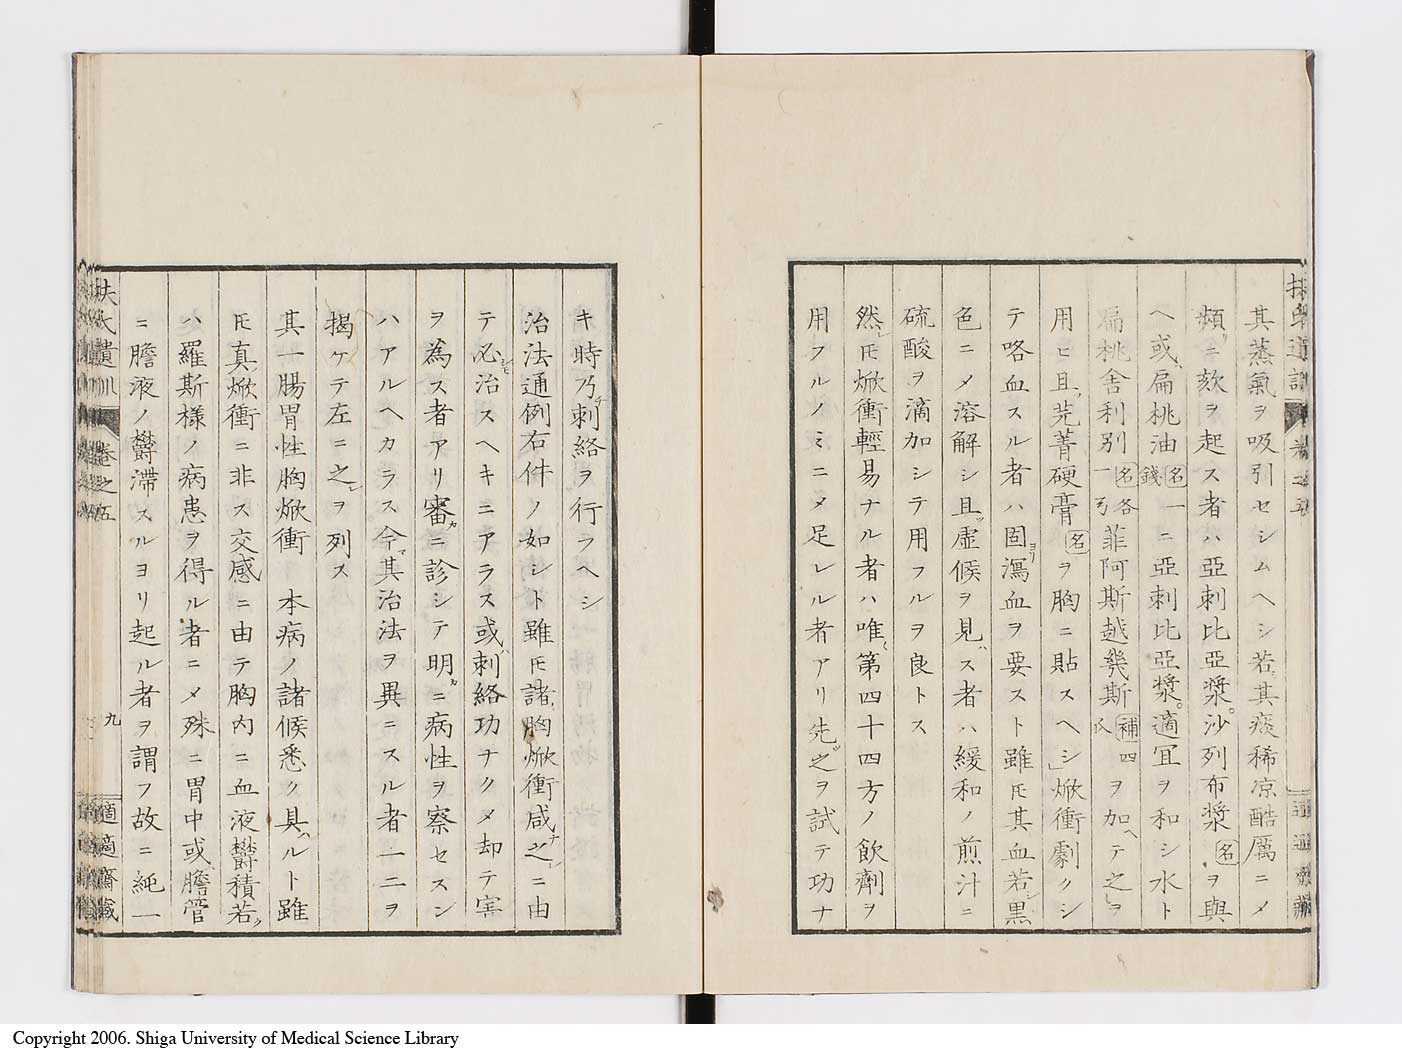 其蒸氣ヲ吸引セシムヘシ若其痰稀凉酷厲ニメ
頻リニ欬ヲ起ス者ハ亞刺比亞漿。沙列布漿名ヲ與
ヘ或ハ扁桃油名一錢一ニ亞刺比亞漿。適宜ヲ和シ水ト
扁桃舎利別名各一弓菲阿斯越幾斯補四氏ヲ加ヘテ之ヲ
用ヒ且ツ芫菁硬膏名ヲ胸ニ貼スヘシ」焮衝劇クシ
テ咯血スル者ハ固ヨリ瀉血ヲ要スト雖𪜈其血若シ黒
色ニメ溶解シ且ツ虚候ヲ見ハス者ハ緩和ノ煎汁ニ
硫酸ヲ滴加シテ用フルヲ良トス
然レ𪜈焮衝輕易ナル者ハ唯第四十四方ノ飲劑ヲ
用フルノミニメ足レル者アリ先ツ之ヲ試テ功ナ
キ時乃チ刺絡ヲ行ラヘシ
治法通例右件ノ如シト雖𪜈諸胸焮衝咸ナ之レニ由
テ必シモ治スヘキニアラス或ハ刺絡功ナクメ却テ害
ヲ為ス者アリ審カニ診シテ明カニ病性ヲ察セスン
ハアルヘカラス今マ其治法ヲ異ニスル者一二ヲ
掲ケテ左ニ之レヲ列ス
其一腸胃性胸焮衝 本病ノ諸候悉ク具ハルト雖
𪜈真ノ焮衝ニ非ス交感ニ由テ胸内ニ血液欝積若ク
ハ羅斯様ノ病患ヲ得ル者ニメ殊ニ胃中或ハ膽管
ニ膽液ノ欝滞スルヨリ起ル者ヲ謂フ故ニ純一
扶氏遺訓 巻之五 九 適適齋藏
Copyright 2006. Shiga University of Medical Science Library